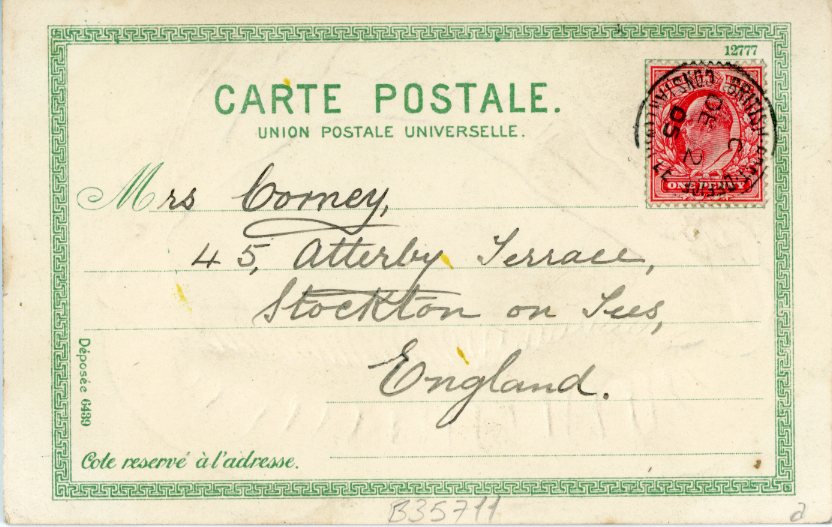 12777
CARTE POSTALE.
UNION POSTALE UNIVERSELLE.
Mrs Corney,
45, Atterby Terrace,
Stockton on Tees,
England.
ONE PENNY
BRITISH
DE 2
05
Déposée 6489
Cote reservé à l'adresse.
B35711
a